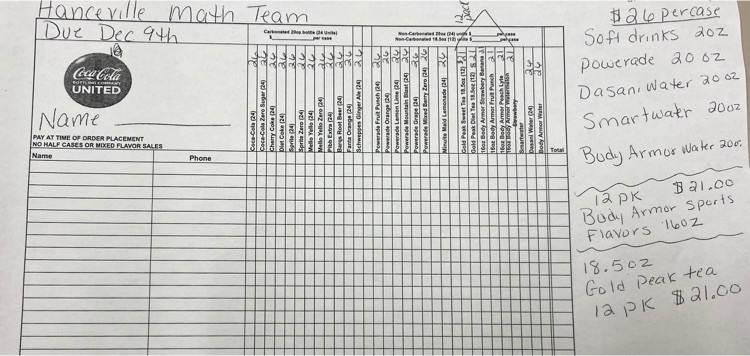 Hanceville Math Team
Due Dec 9th
Coca-Cola
BOTTLING COMPANY
UNITED
Name
PAY AT TIME OF ORDER PLACEMENT
NO HALF CASES OR MIXED FLAVOR SALES
Name Phone
Carbonated 20oz bottle (24 Units)
$ per case
12 pack
Non-Carbonated 20oz (24) units $ per case
Non-Carbonated 18.5oz (12) units $ per case
Coca-Cola (24) 26
Coca-Cola Zero Sugar (24) 26
Cherry Coke (24) 26
Diet Coke (24) 26
Sprite (24) 26
Sprite Zero (24) 26
Mello Yello (24) 26
Mello Yello Zero (24) 26
Pibb Extra (24) 26
Barqs Root Beer (24) 26
Fanta Orange (24) 26
Schweppes Ginger Ale (24) 26
Powerade Fruit Punch (24) 26
Powerade Orange (24) 26
Powerade Lemon Lime (24) 26
Powerade Mountain Blast (24) 26
Powerade Grape (24) 26
Powerade Mixed Berry Zero (24) 26
Minute Maid Lemonade (24) 26
Gold Peak Sweet Tea 18.5oz (12) $21
Gold Peak Diet Tea 18.5oz (12) $21
16oz Body Armor Strawberry Banana 21
16oz Body Armor Fruit Punch 21
16oz Body Armor Peach Lyte 21
16oz Body Armor 21
Strawberry
Smartwater
Dasani Water (24) 26
Body Armor Water 26
Total
$26 per case
Soft drinks 20z
Powerade 20 oz
Dasani Water 20 oz
Smartwatr 20oz
Body Armor Water 20oz
12 PK $21.00
Body Armor Sports
Flavors 16oz
18.5oz
Gold Peak tea
12 PK $21.00